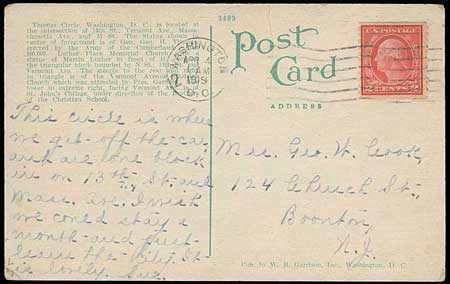 Thomas Circle, Washington, D. C., is located at
the intersection of 14th St., Vermont Ave., Massa-
chusetts Ave., and M St. The Statue shown in
center of foreground is of Gen. Geo. H. Thomas,
erected by the Army of the Cumberland
Luther Place Memorial Church
statue of Martin Luther in front of it
the triangular block bounded by N St., 14th St. and
Vermont Ave. The steeple to the rear
triangle is of the Vermont Ave.
Church which was attended by
tower to extreme right, facing Vermont Ave.
St. John's College, under direction of the
of the Christian School.
3485
WASHINGTON
D.C.
Post
Card
ADDRESS
2 CENTS 2
This circle is where
we get off the car,
and are one block
in on 13th St. and
Mass. Ave. I wish
we could stay a
month and just
learn the City. It
is lovely. Sue.
Mrs. Geo. W. Cook,
124 Church St.,
Boonton,
N.J.
Pub. by W. B. Garrison, Inc., Washington, D. C.